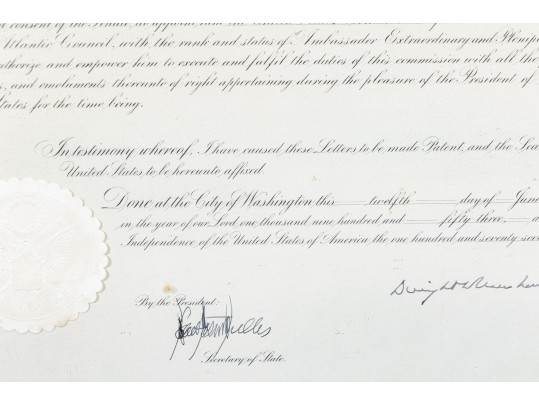 consent of the Senate, to appoint him the United
Atlantic Council, with the rank and status of Ambassador Extraordinary and Plenipo
authorize and empower him to execute and fulfil the duties of this commission with all the
s, and emoluments thereunto of right appertaining during the pleasure of the President of
States for the time being.
In testimony whereof, I have caused these Letters to be made Patent, and the Sea
United States to be hereunto affixed.
Done at the City of Washington this twelfth day of June
in the year of our Lord one thousand nine hundred and fifty three, a
Independence of the United States of America the one hundred and seventy-seve
Dwight D Eisenhow
By the President:
John Foster Dulles
Secretary of State.